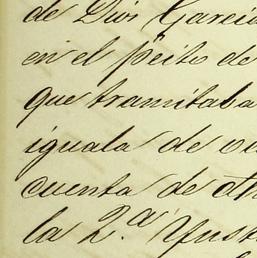 de Dios Garcia
en el peito de
que tramitaba
iguala de
cuenta de
la 2.ª